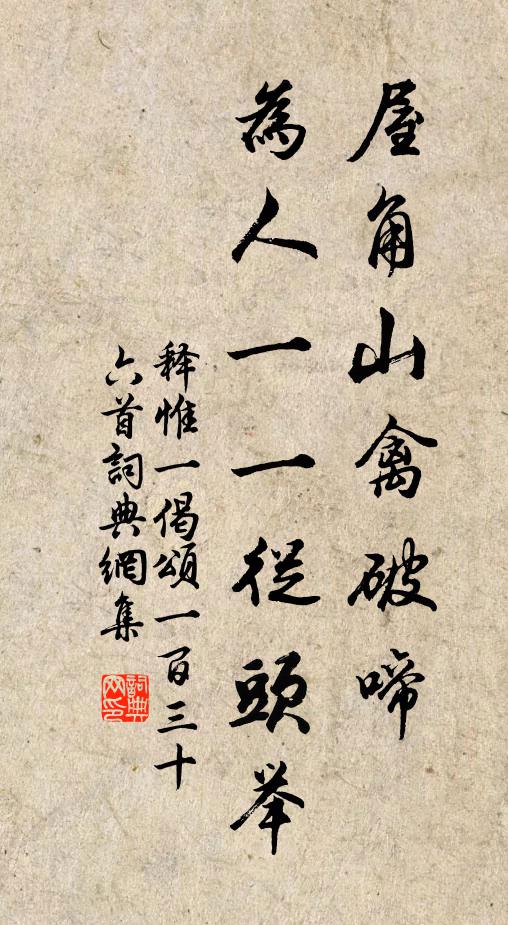 屋角山禽破啼
為人一一從頭举
释惟一偈頌一百三十
六首詞典網集
詞典
网印